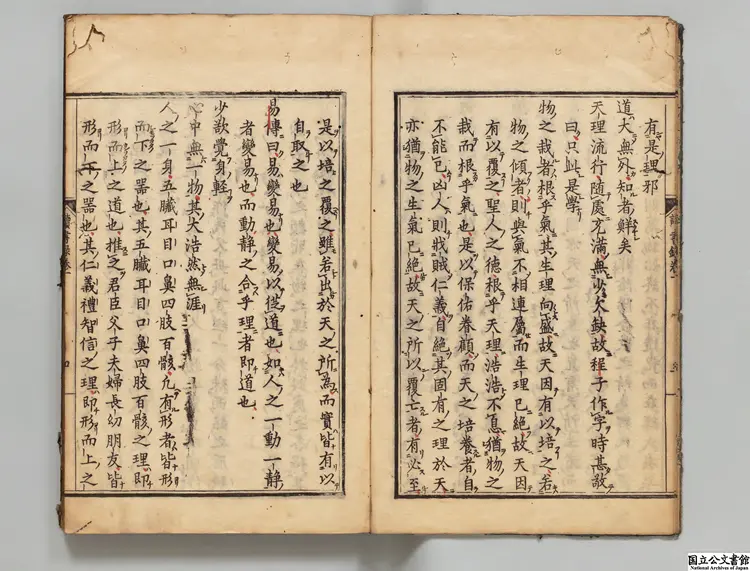 有是理邪
道大無外知者鮮矣
天理流行隨處充滿無少欠缺故程子作字時甚敬
曰只此是學
物之栽者根乎氣其生理向盛故天因有以培之若
物之傾者則與氣不相連屬而生理已絕故天因
有以覆之聖人之德根乎天理浩浩不息猶物之
栽而根乎氣也是以保佑眷顧而天之培養者自
不能已凶人則戕賊仁義自絕其固有之理於天
亦猶物之生氣已絕故天之所以覆亡者有必至
是以培之覆之雖若出於天之所爲而實皆有以
自取之也
易傳曰易變易也變易以從道也如人之一動一靜
者變易也而動靜之合乎理者即道也
少欲覺身輕
心中無一物其大浩然無涯
人之一身五臟耳目口鼻四肢百骸凢有形者皆形
而下之器也其五臟耳目口鼻四肢百骸之理即
形而上之道也推之君臣父子夫婦長幼朋友皆
形而下之器也其仁義禮智信之理即形而上之
讀書錄卷
国立公文書館
National Archives of Japan